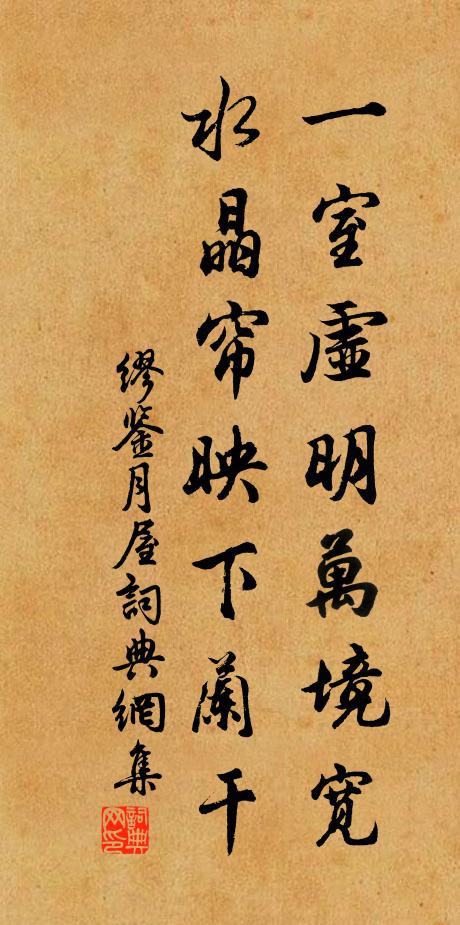 一室虛明萬境寬
水晶帘映下蘭干
繆鉴月屋詞典網集
詞典网印